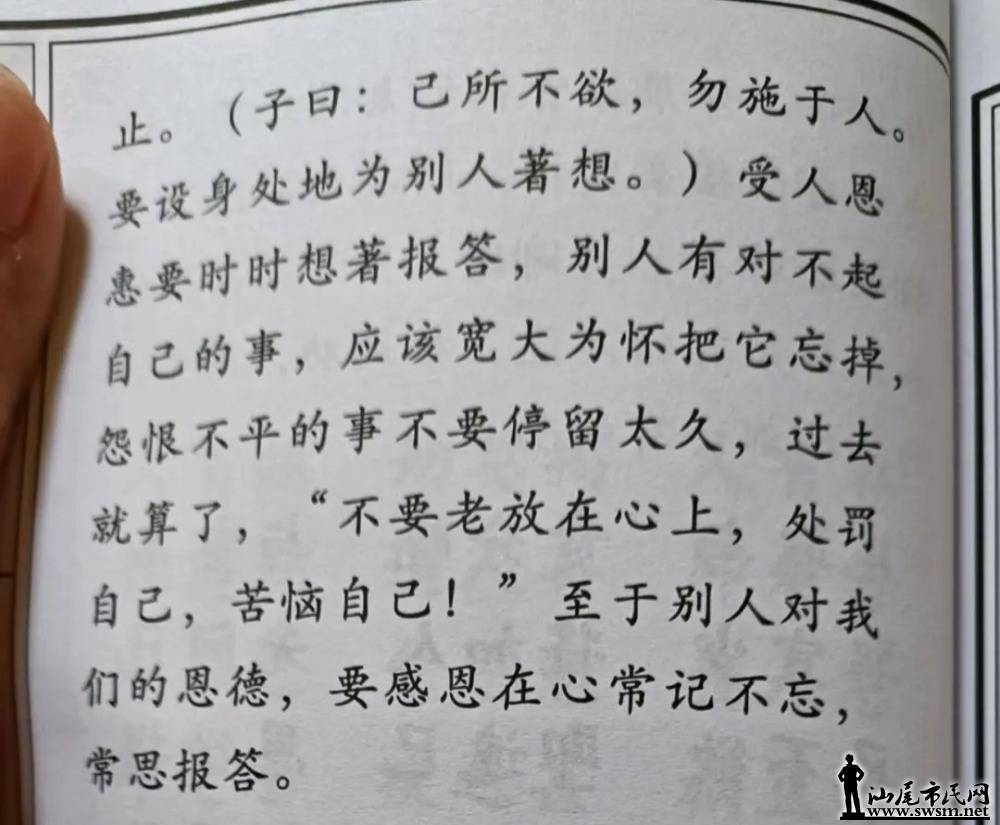 止。（子曰：己所不欲，勿施于人。
要设身处地为别人著想。）受人恩
惠要时时想著报答，别人有对不起
自己的事，应该宽大为怀把它忘掉，
怨恨不平的事不要停留太久，过去
就算了，“不要老放在心上，处罚
自己，苦恼自己！”至于别人对我
们的恩德，要感恩在心常记不忘，
常思报答。
汕尾市民网
www.swsm.net